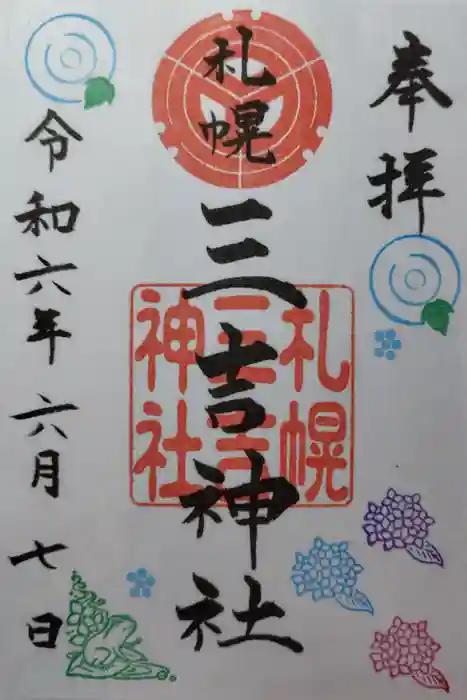 奉拝
札幌
三吉神社
札幌
三吉
神社
令和六年六月七日